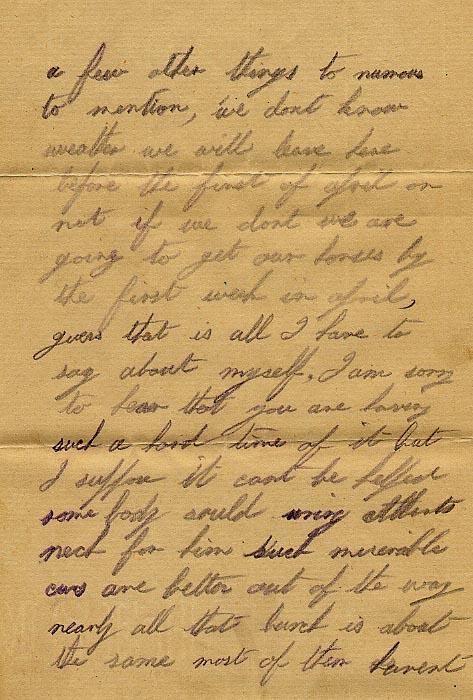 a few other things to numous
to mention, we dont know
weather we will leave here
before the first of april or
not if we dont we are
going to get our horses by
the first week in april,
guess that is all I have to
say about myself. I am sorry
to hear that you are having
such a hard time of it but
I suppose it cant be helped
some body sould wring
neck for him such miserible
curs are better out of the way
nearly all that bunch is about
the same most of them havent